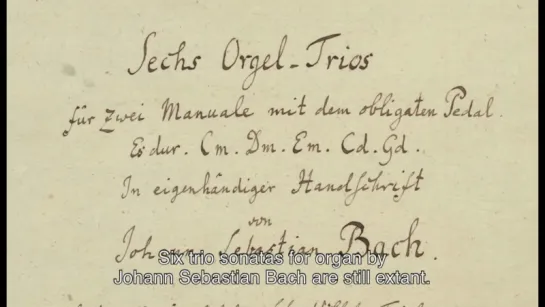 Sechs Orgel-Trios
für zwei Manuale mit dem obligaten Pedal.
Es dur. Cm. Dm. Em. Cd. Gd.
In eigenhändiger Handschrift
von
Johann Sebastian Bach.
Six trio sonatas for organ by
Johann Sebastian Bach are still extant.